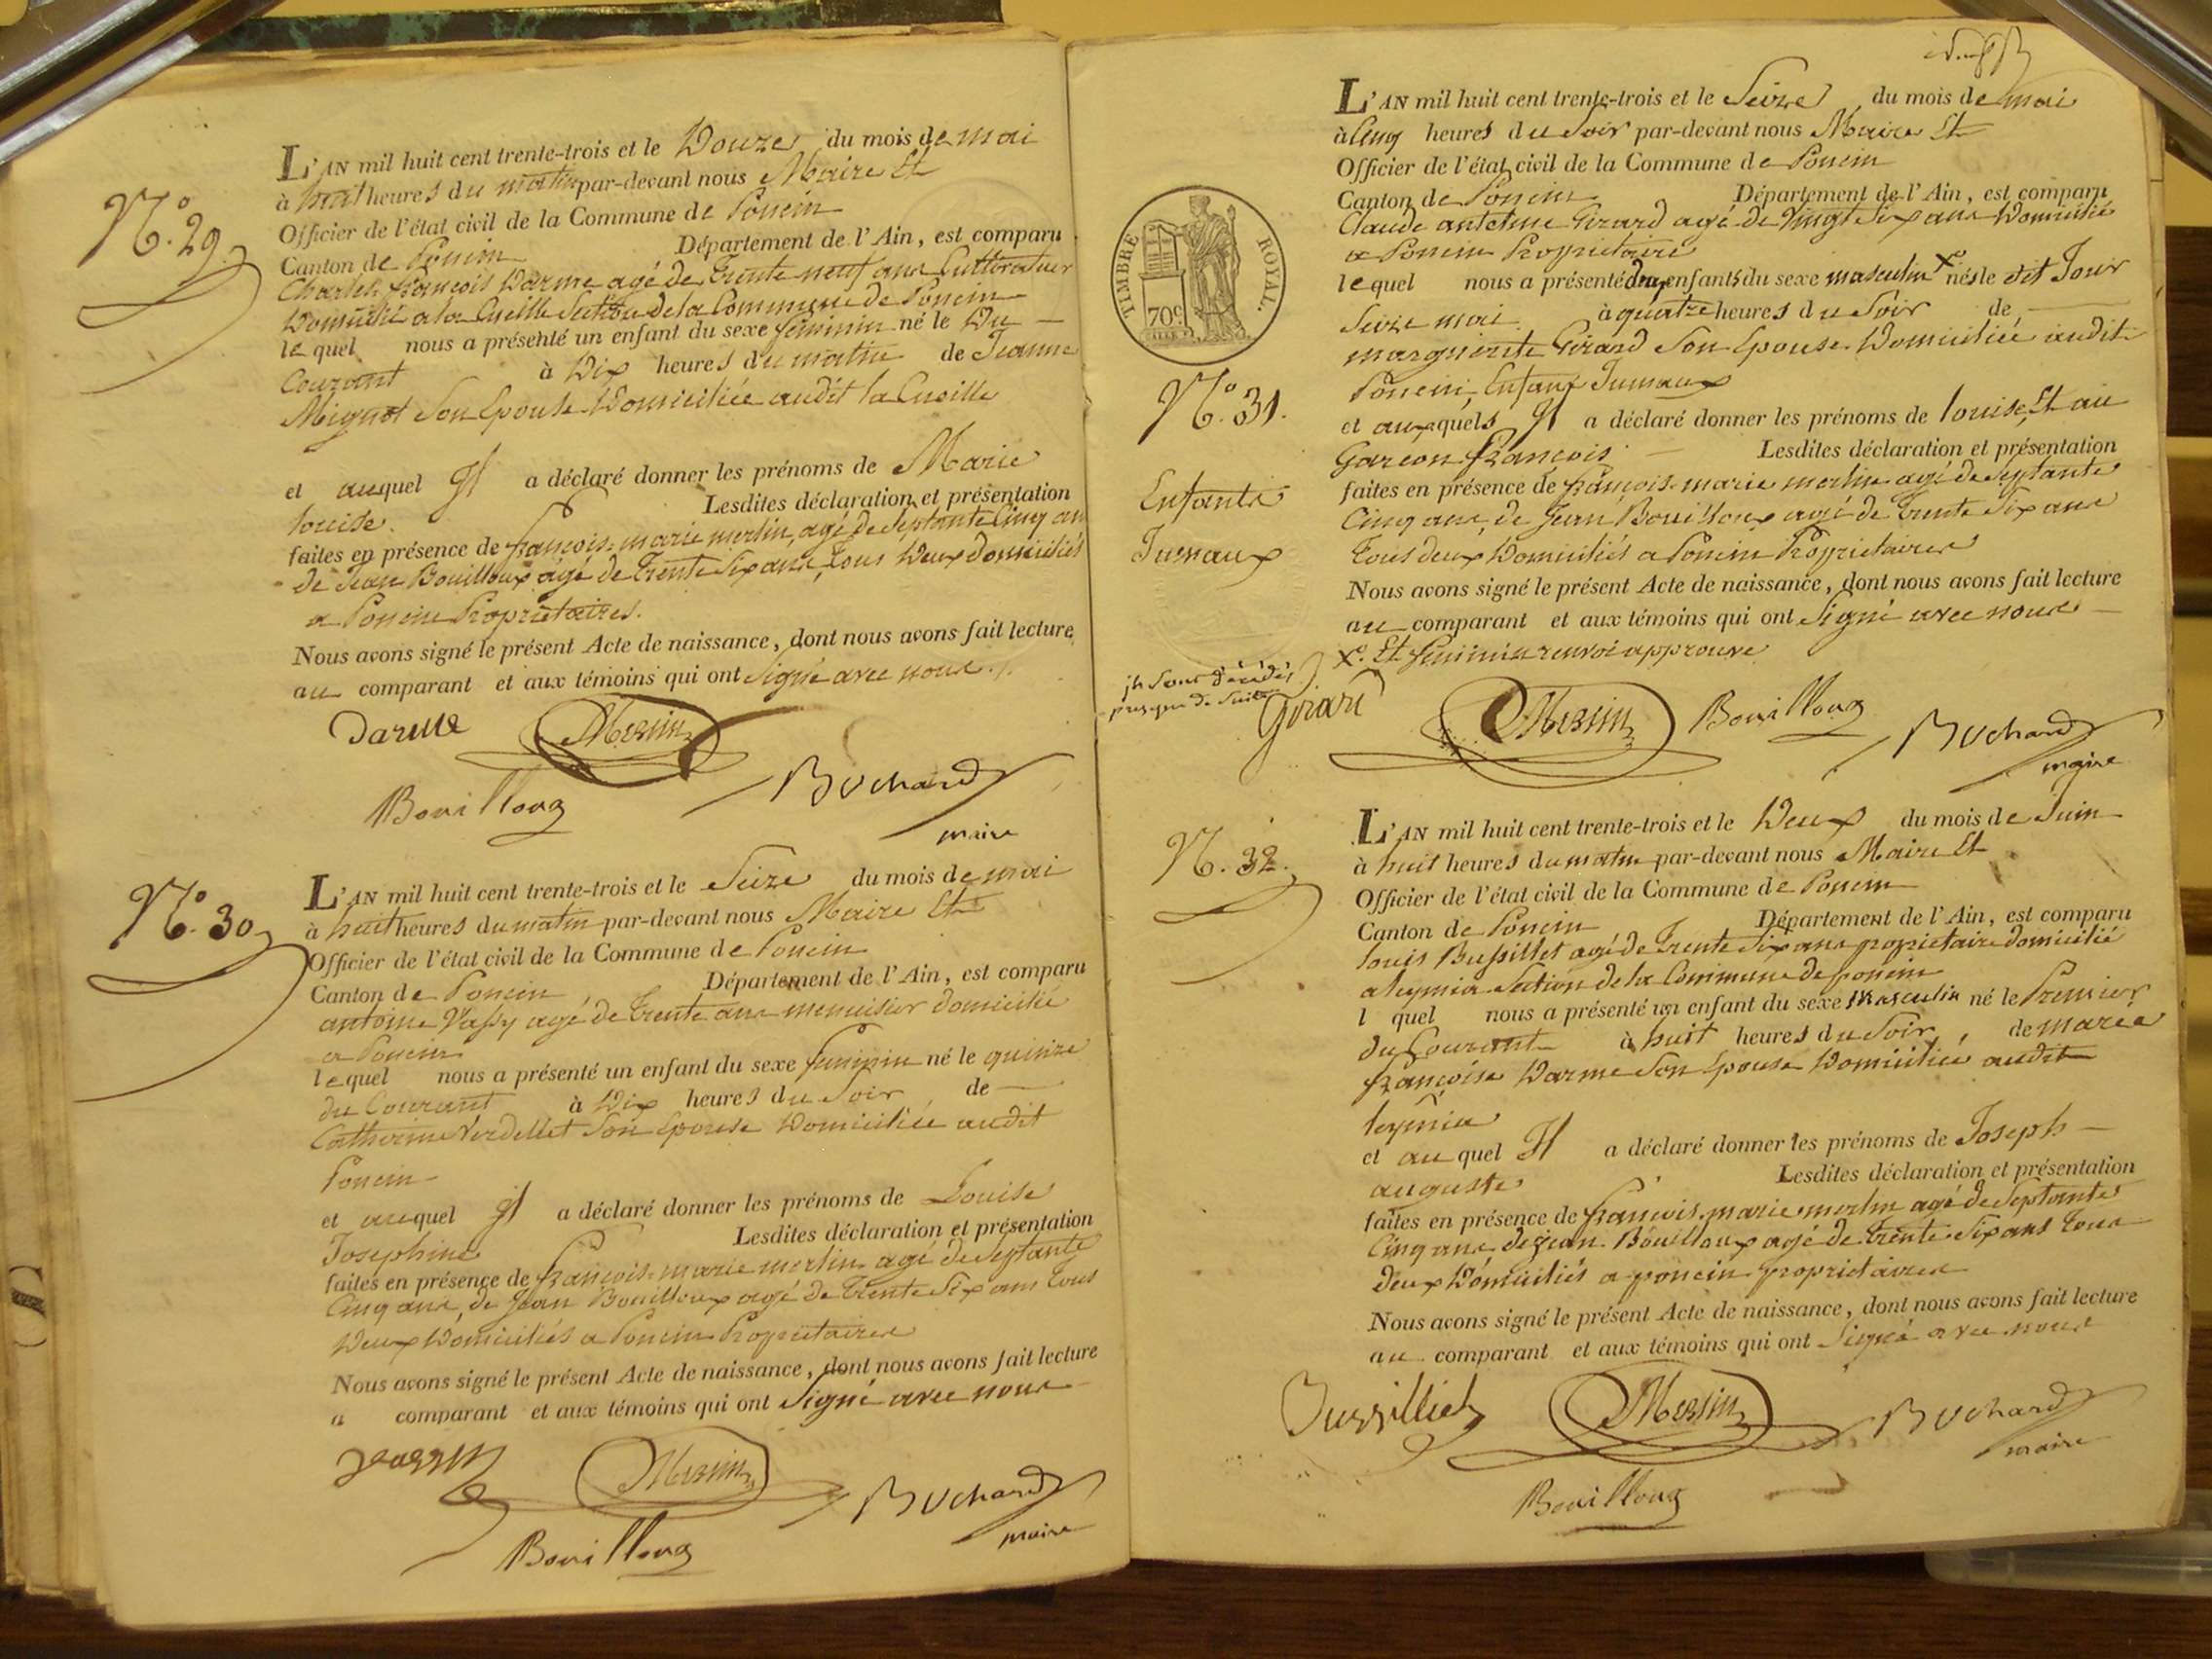 N.º 29.
L'AN mil huit cent trente-trois et le Douze du mois de mai
à huit heures du matin par-devant nous Maire Et
Officier de l'état civil de la Commune de Poncin
Canton de Poncin Département de l'Ain, est comparu
Charles françois Darme agé de Trente neuf ans Cultivateur
Domicilié a la Cueille Section de la Commune de Poncin
le quel nous a présenté un enfant du sexe féminin né le Du
Courant à Dix heures du matin de Jeanne
Mignot Son Epouse Domiciliée audit la Cueille
et auquel Il a déclaré donner les prénoms de Marie
louise. Lesdites déclaration et présentation
faites en présence de françois-marie merlin, agé de Septante Cinq an
de Jean Bouilloux agé de Trente Six ans, tous Deux domiciliés
a Poncin Propriétaires.
Nous avons signé le présent Acte de naissance, dont nous avons fait lecture
au comparant et aux témoins qui ont Signé avec nous.
Darme Merlin
Bouilloux Bochard
maire
N.º 30
L'AN mil huit cent trente-trois et le Seize du mois de mai
à huit heures du matin par-devant nous Maire Et
Officier de l'état civil de la Commune de Poncin
Canton de Poncin Département de l'Ain, est comparu
antoine Vassy agé de trente ans menuisier domicilié
a Poncin
le quel nous a présenté un enfant du sexe feminin né le quinze
du Courant à Dix heures du Soir de
Catherine Verdellet Son Epouse Domiciliée audit
Poncin
et auquel Il a déclaré donner les prénoms de Louise
Josephine Lesdites déclaration et présentation
faites en présence de françois-marie merlin agé de Septante
Cinq ans, de Jean Bouilloux agé de trente Six ans tous
Deux Domiciliés a Poncin Propriétaires
Nous avons signé le présent Acte de naissance, dont nous avons fait lecture
a comparant et aux témoins qui ont Signé avec nous
Merlin
Bouilloux Bochard
maire
L'AN mil huit cent trente-trois et le Seize du mois de mai
à Cinq heures du Soir par-devant nous Maire Et
Officier de l'état civil de la Commune de Poncin
Canton de Poncin Département de l'Ain, est comparu
Claude antoine Girard agé de Vingt Six ans Domicilié
a Poncin Propriétaire
le quel nous a présenté deux enfants du sexe masculin X nés le dit Jour
Seize mai à quatre heures du Soir de
marguerite Girard Son Epouse Domiciliée audit
Poncin, Enfans Jumaux
et auxquels Il a déclaré donner les prénoms de louise, Et au
Garçon françois Lesdites déclaration et présentation
faites en présence de françois-marie merlin agé de Septante
Cinq ans, de Jean Bouilloux agé de Trente Six ans
Tous deux Domiciliés a Poncin Propriétaires
Nous avons signé le présent Acte de naissance, dont nous avons fait lecture
au comparant et aux témoins qui ont Signé avec nous
X. Et feminin renvoi approuvé
TIMBRE ROYAL.
70c
N.º 31.
Enfants
Jumaux
ils sont décédés
presque de suite
Girard Merlin Bouilloux Bochard
maire
N. 32.
L'AN mil huit cent trente-trois et le Deux du mois de Juin
à huit heures du matin par-devant nous Maire Et
Officier de l'état civil de la Commune de Poncin
Canton de Poncin Département de l'Ain, est comparu
louis Bussillet agé de Trente Six ans propriétaire domicilié
a leymia Section de la Commune de poncin
l quel nous a présenté un enfant du sexe Masculin né le Premier
du Courant à huit heures du Soir, de marie
françoise Darme Son Epouse Domiciliée audit
leymia
et au quel Il a déclaré donner les prénoms de Joseph
auguste Lesdites déclaration et présentation
faites en présence de françois-marie merlin agé de Septante
Cinq ans de jean Bouilloux agé de trente Six ans tous
deux Domiciliés a poncin propriétaires
Nous avons signé le présent Acte de naissance, dont nous avons fait lecture
au comparant et aux témoins qui ont Signé avec nous
Bussilliet Merlin Bochard
maire
Bouilloux